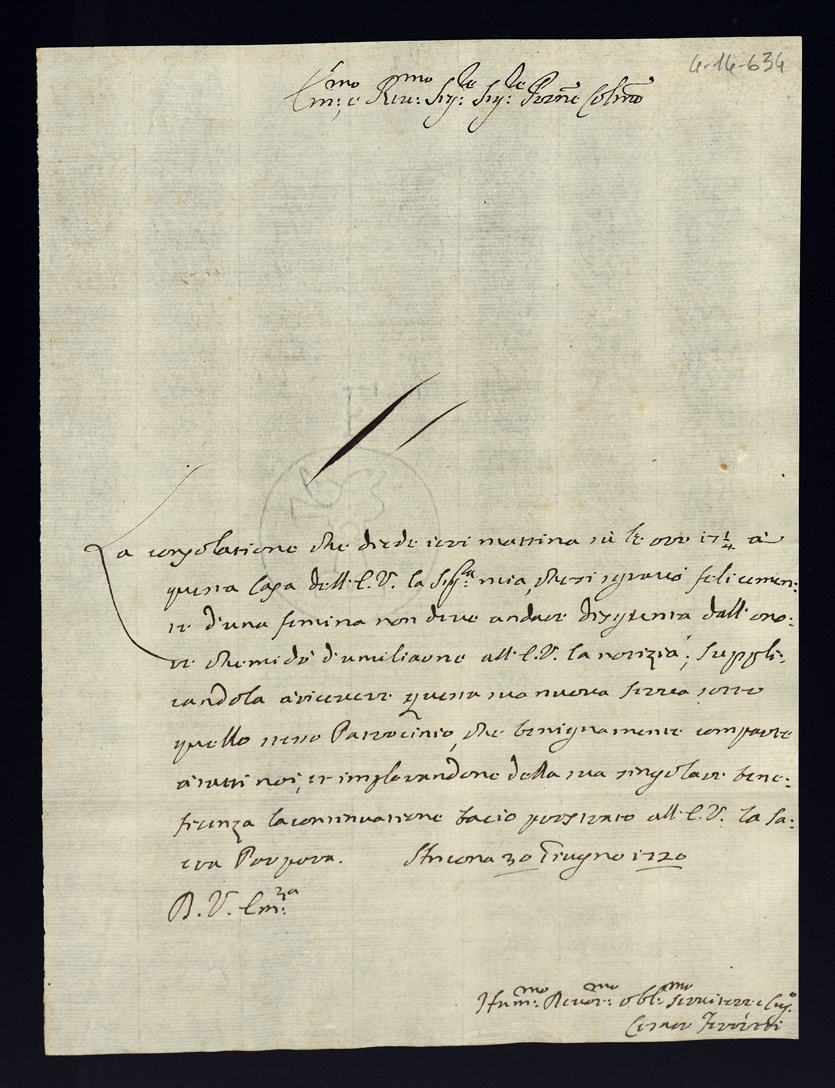 4-14-634
Em:mo, e Reu:mo Sig:re Sig:re Prone Colmo
La consolatione che diede ieri mattina sù le ore 17 1/4 a
questa Casa dell'E.V. la Sig:ra mia, che si sgravò felicemen:
te d'una femina non deve andare disgiunta dall'ono:
re che mi dò d'umiliarne all'E.V. la notizia; suppli:
candola à ricevere questa sua nuova serva sotto
quello stesso Patrocinio, che benignamente comparte
à tutti noi, et implorandone della sua singolare bene:
ficenza la continuatione bacio prostrato all'E.V. la Sa:
cra Porpora. Ancona 30 Giugno 1720
D. V. Em:za
Hum:mo Deuot:mo obbl:mo Seruitore e
Cesare